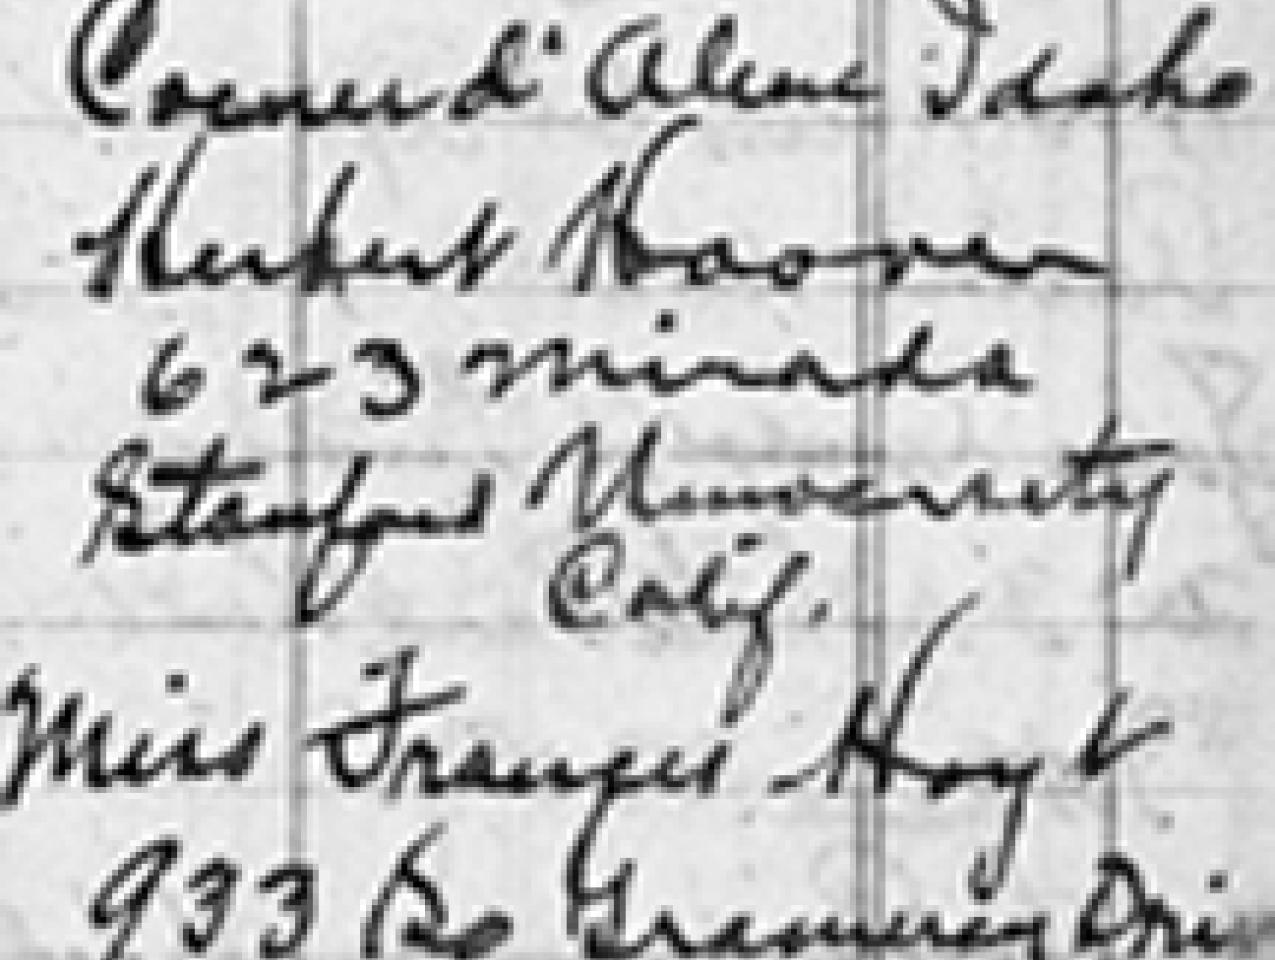 Coeuer d' Alene Idaho
Herbert Hoover
623 Mirada
Stanford University
Calif.
Miss Frances Hoyt
933 So Gramercy Dri